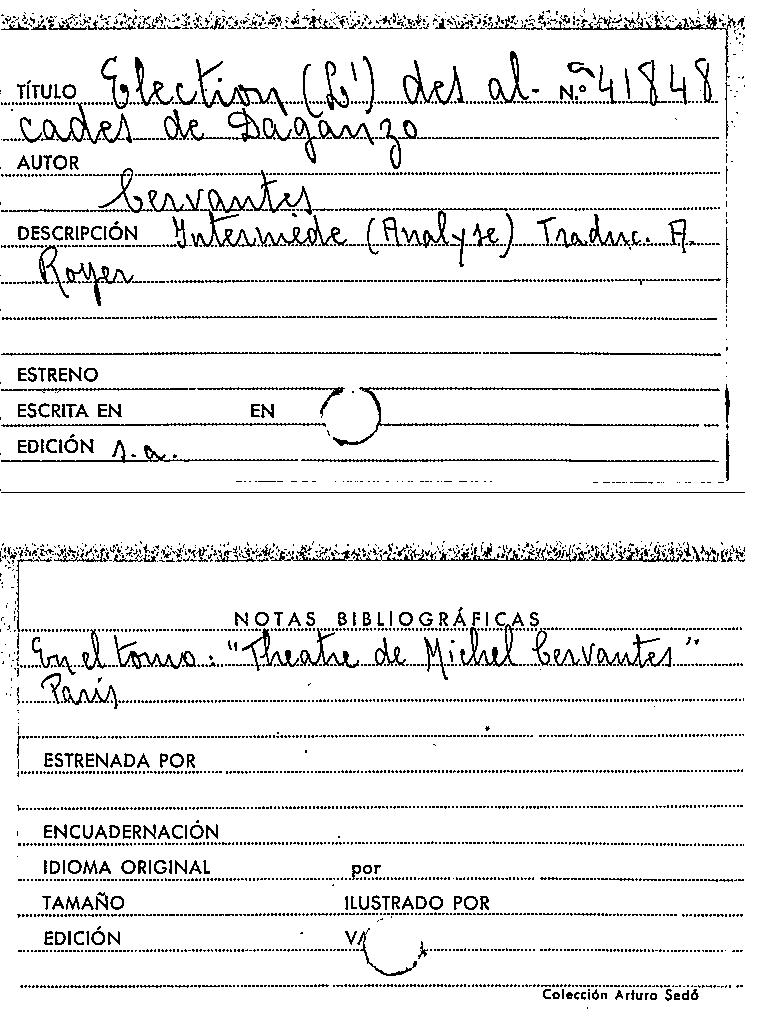 TÍTULO Election (L') des al- N.º 41848
cades de Daganzo
AUTOR
Cervantes
DESCRIPCIÓN Intermède (Analyse) Traduc. A.
Royer
ESTRENO
ESCRITA EN EN
EDICIÓN s.a.
NOTAS BIBLIOGRÁFICAS
En el tomo: "Theatre de Michel Cervantes"
París
ESTRENADA POR
ENCUADERNACIÓN
IDIOMA ORIGINAL por
TAMAÑO ILUSTRADO POR
EDICIÓN
Colección Arturo Sedó